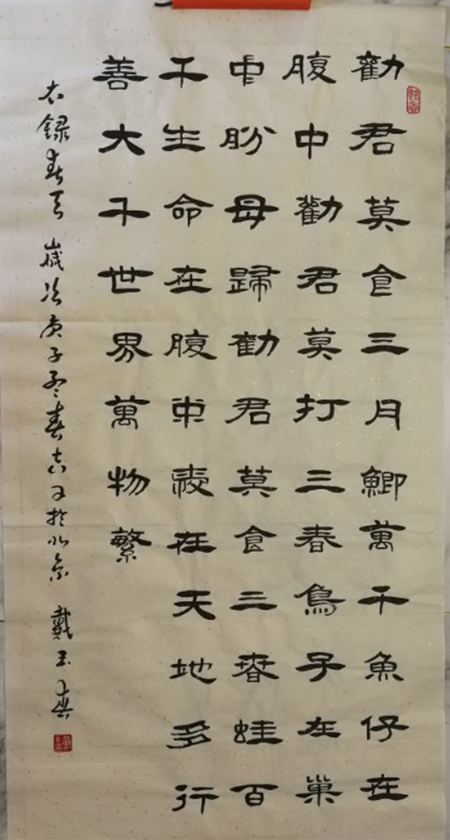 勧君莫食三月鯽萬千魚仔在
腹中勸君莫打三春鳥子在巢
中盼母歸勧君莫食三春蛙百
千生命在腹中愛在天地多行
善大千世界萬物繁
右録春天 歲次庚子孟春吉日於北京 戴玉春